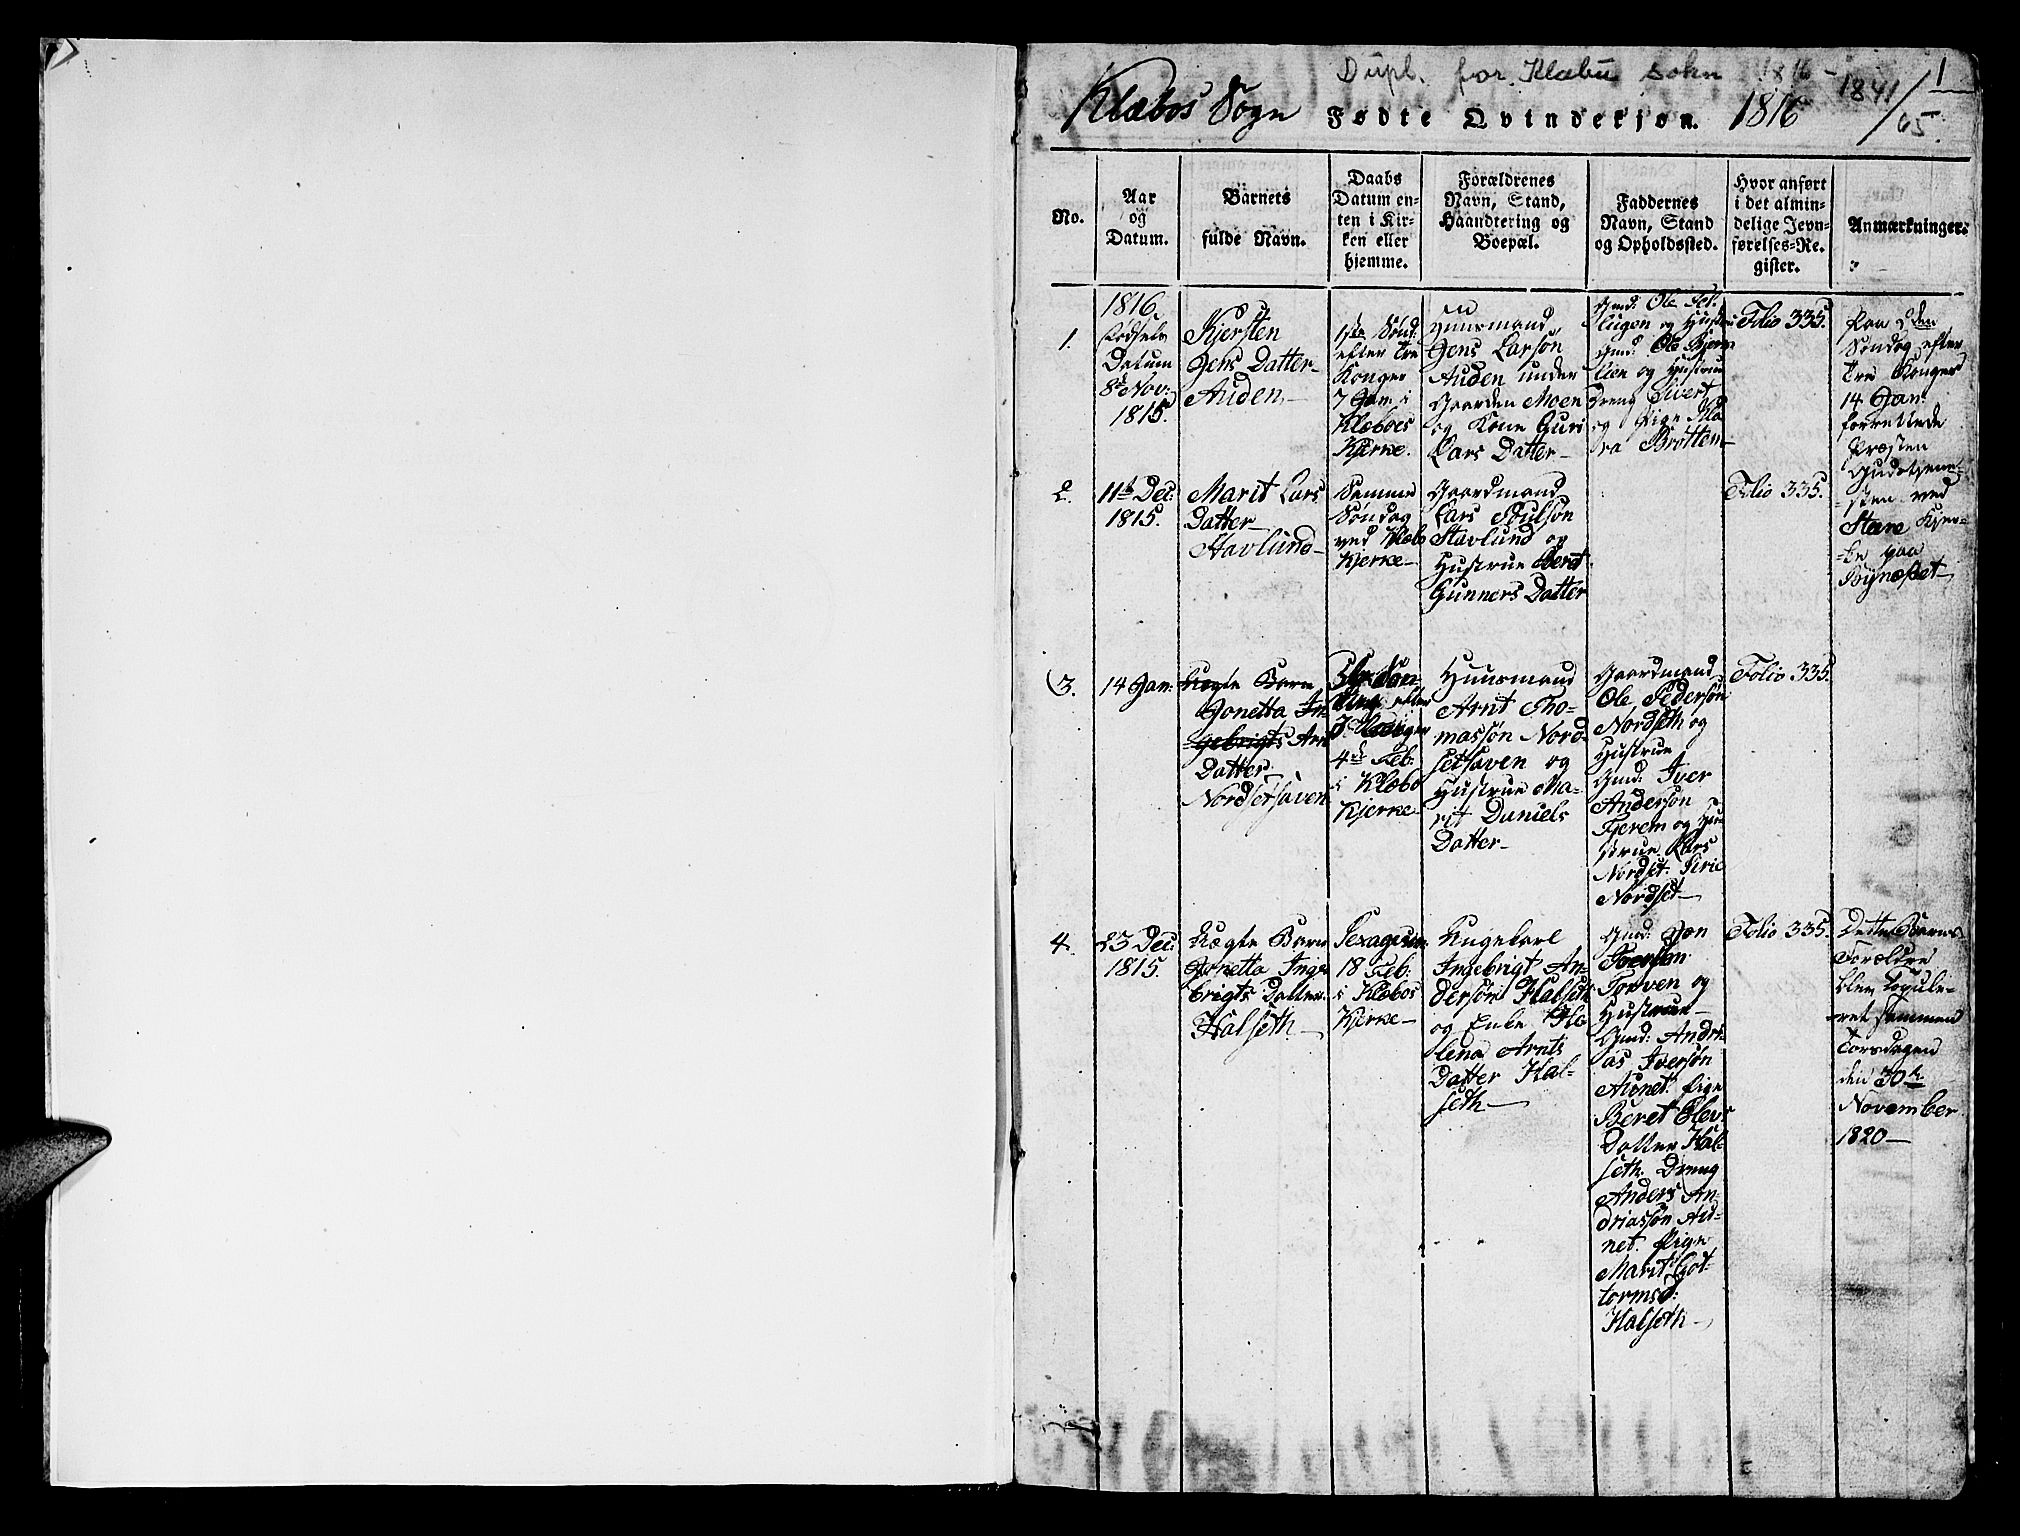 Dupl. for Klæbu sokn 1816 - 1841
1
Klæbos Sogn Fødte Qvindekjøn. 1816
No.
Aar
og
Datum.
Barnets
fulde Navn.
Daabs
Datum en-
ten i Kir-
ken eller
hjemme.
Forældrenes
Navn, Stand,
Haandtering og
Boepæl.
Faddernes
Navn, Stand
og Opholdssted.
Hvor anført
i det almin-
delige Jevn-
førelses-Re-
gister.
Anmærkninger.
1.
1816.
Fødsels
Datum
8de Nov:
1815.
Kjersten
Jens Datter
Auden
1ste Sønd:
efter Tre
Konger
7 Jan: i
Klæboes
Kjerke.
Huusmand
Jens Larsøn
Auden under
Gaarden Moen
og Kone Guri
Lars Datter
Gmd: Ole
og Hustru
Gmd: Ole
lien og Hustrue
Dreng Sivert
og Pige
Brøtten
Folio 335.
Paa 2den
Søndag efter
Tre Konger
14 Jan:
forrettede
Præsten
Gudstjene-
sten ved
Kjer-
ke paa
Bynæsset
2.
11te Dec:
1815.
Marit Lars
Datter
Stavlund
Samme
Søndag
ved Klæbo
Kjerke
Gaardmand
Lars Poulsøn
Stavlund og
Hustrue Beret
Gunners Datter
Folio 335.
3.
14 Jan:
Ægte Barn
Jonetta In-
gebrigts Arn
Datter
Nordsetsaven
efter
4de Feb:
i Klæbo
Kjerke
Huusmand
Arnt Tho-
massøn Nord-
setsaven og
Hustrue Ma-
rit Daniels
Datter
Gaardmand
Ole Pedersøn
Nordseth og
Hustrue
Gmd: Iver
Andersøn
Tjerem og Hu-
strue. Lars
Nordset. Siric
Nordset
Folio 335.
4.
23 Dec:
1815.
Uægte Barn
Jonetta Inge
brigts Datter
Halseth
Sexagesim:
18 Feb:
i Klæbos
Kjerke
Ungekarl
Ingebrigt An-
dersøn Halseth
og Enke He
lena Arnts
Datter Hal-
seth
Gmd: Jon
Iversøn
Torven og
Hustrue
Gmd: Andre
as Iversøn
Aunet. Pige
Beret Olevs
Datter Hal-
seth. Dreng
Anders An-
driassøn Au-
net. Pige
Marit Got-
tormsd:
Halseth
Folio 335.
Dette Barns
Forældre
blev Copule-
ret sammen
Torsdagen
den 30te
November
1820